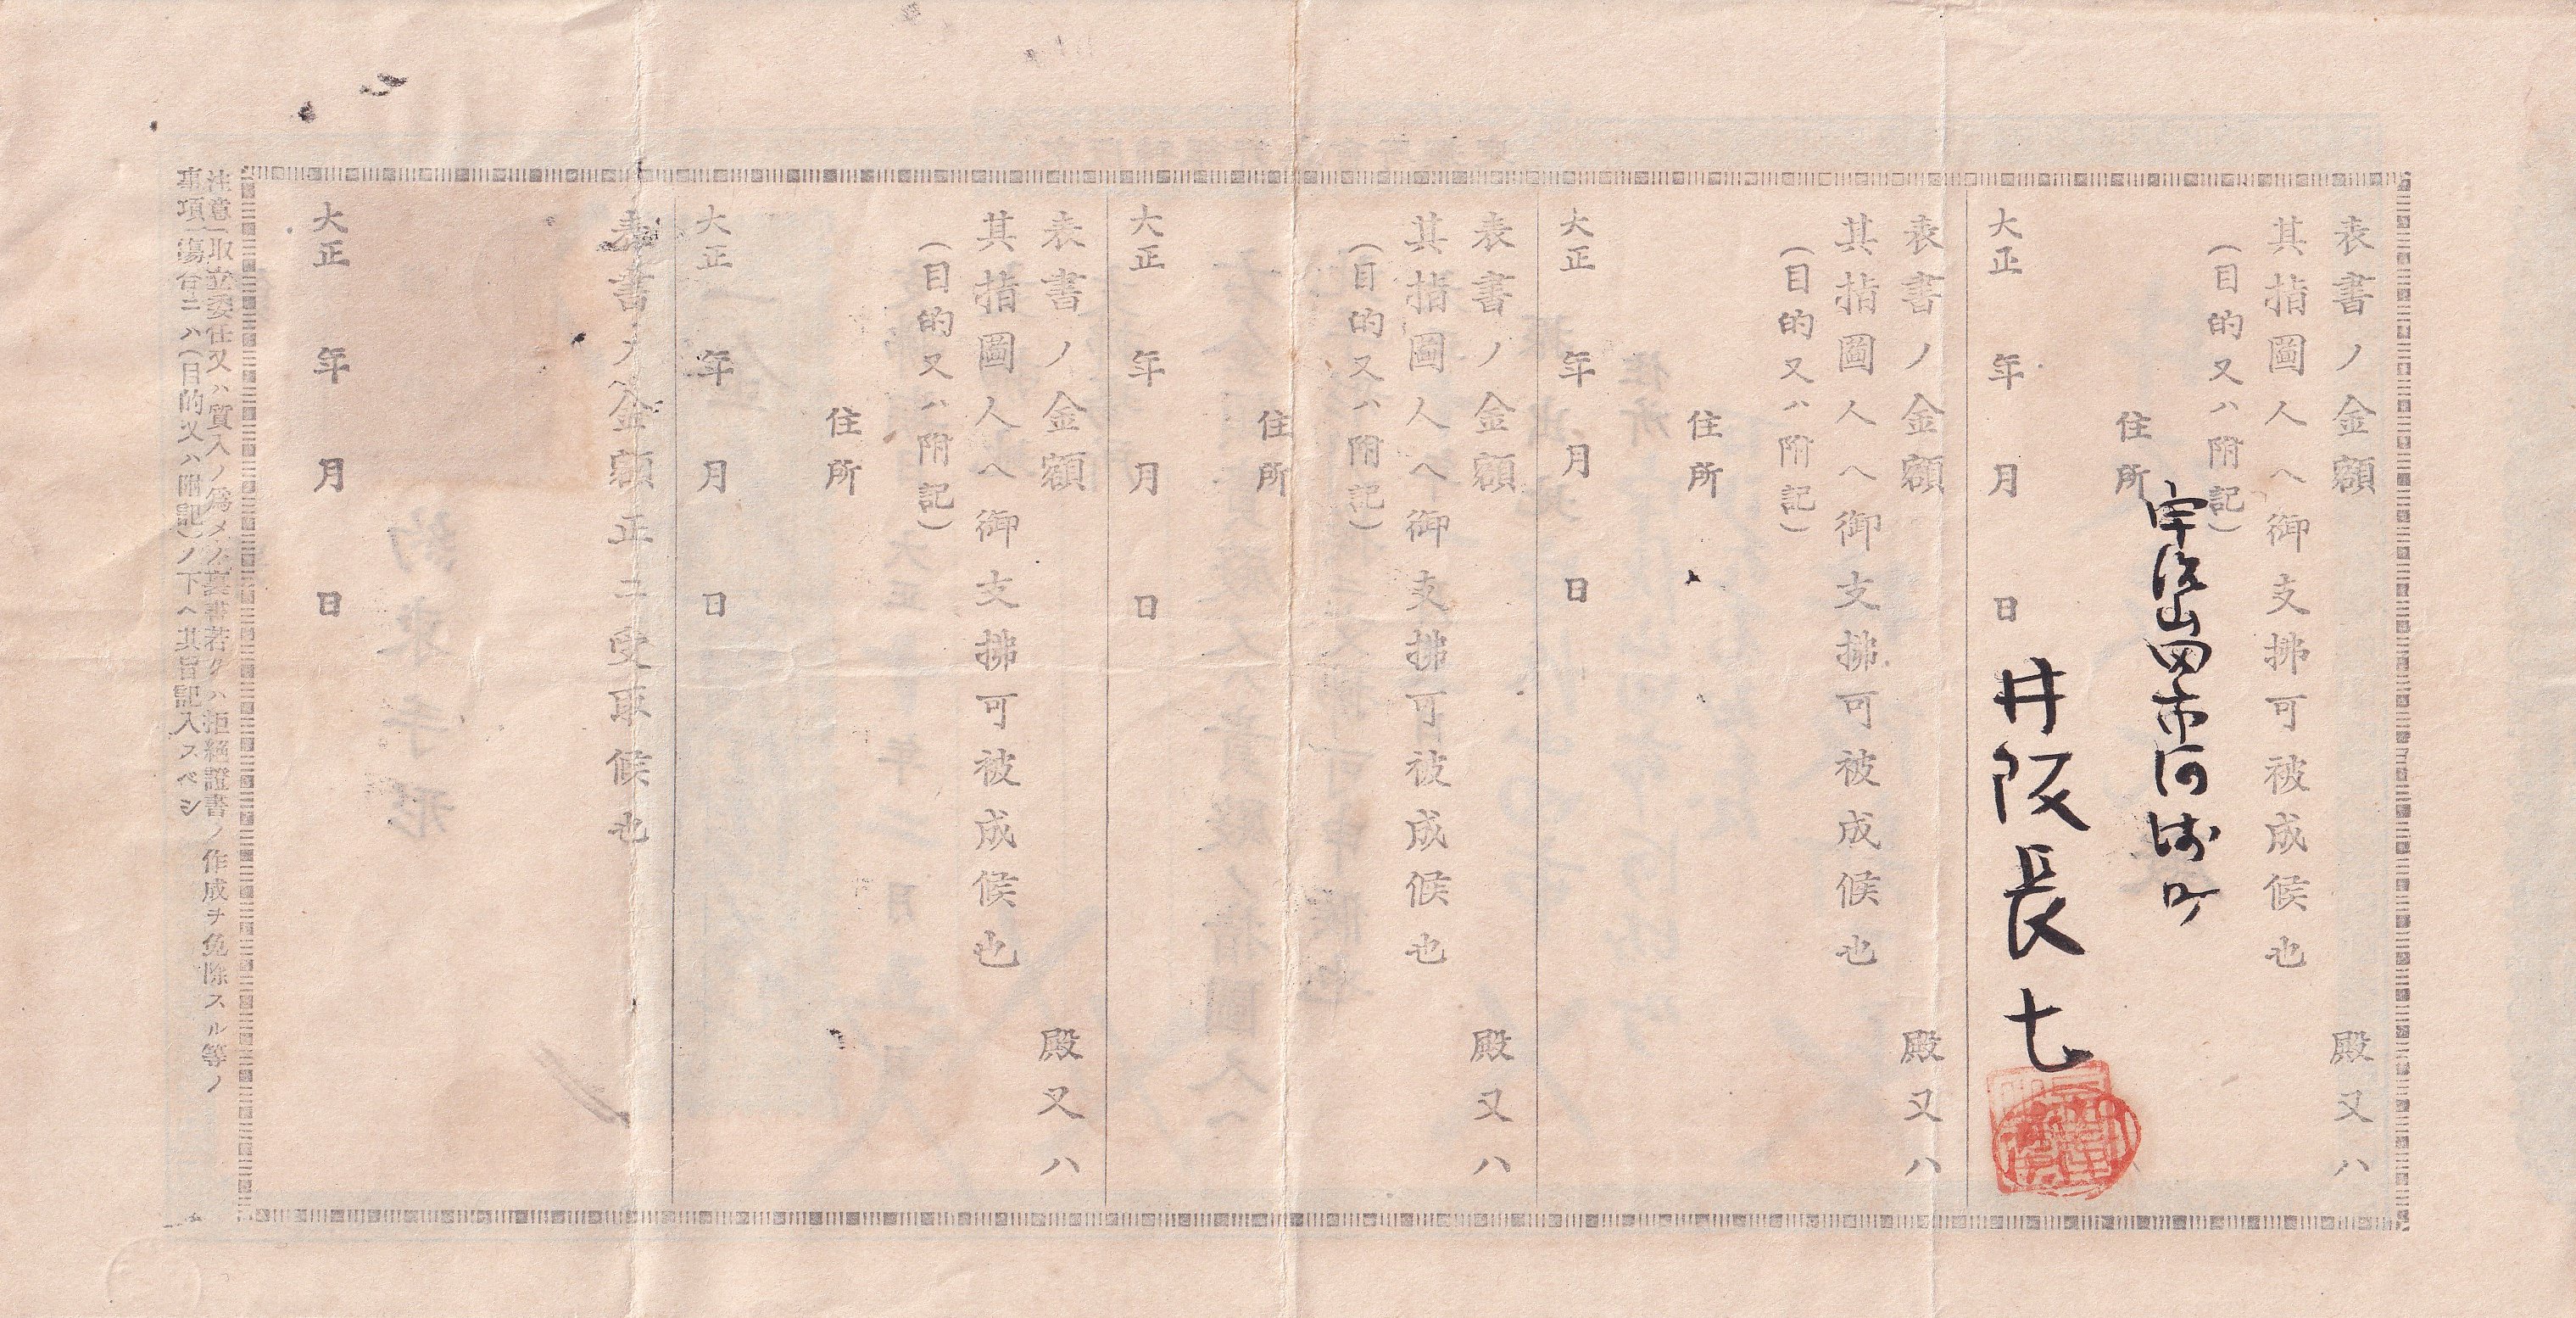 表書ノ金額　殿又ハ
其指圖人ヘ御支拂可被成候也
（目的又ハ附記）
住所　宇治山田市河崎町
大正　年　月　日　井阪長七
表書ノ金額　殿又ハ
其指圖人ヘ御支拂可被成候也
（目的又ハ附記）
住所
大正　年　月　日
表書ノ金額　殿又ハ
其指圖人ヘ御支拂可被成候也
（目的又ハ附記）
住所
大正　年　月　日
表書ノ金額　殿又ハ
其指圖人ヘ御支拂可被成候也
（目的又ハ附記）
住所
大正　年　月　日
表書ノ金額正ニ受取候也
大正　年　月　日
注意　取立委任又ハ質入ノ爲メノ裏書若クハ拒絕證書ノ作成ヲ免除スル等ノ
事項ノ塲合ニハ（目的又ハ附記）ノ下ヘ其旨記入スベシ